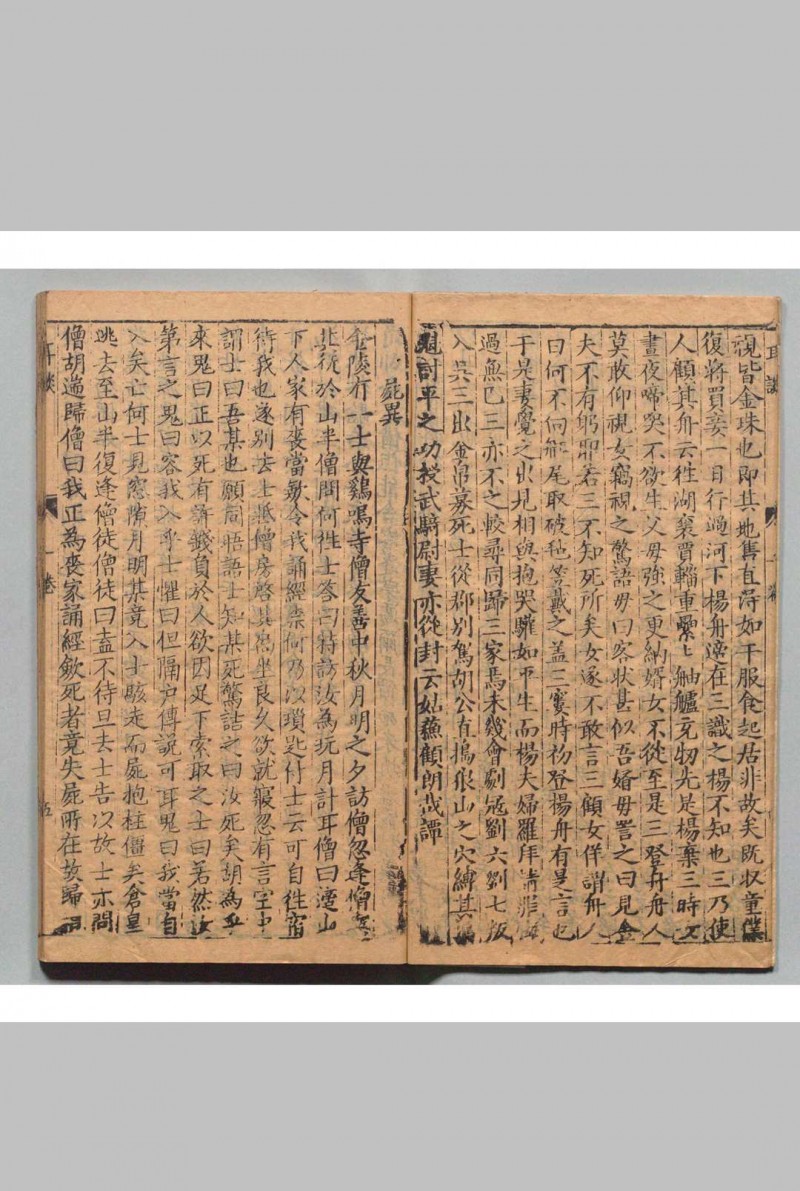 視皆金珠也即其地售直得如干服食起居非故矣既收童僕
復將買妾一日行過河下楊舟適在三識之楊不知也三乃使
人顧其舟云往湖襄賈輜重纍纍舳艫充牣先是楊棄三時女
晝夜啼哭不欲生父母強之更納婿女不從至是三登舟舟人
莫敢仰視女竊視之驚語母曰客狀甚似吾婿母詈之曰見金
夫不有躬耶若三不知死所矣女遂不敢言三顧女佯謂舟人
曰何不向船尾取破氊笠戴之蓋三窶時初登楊舟有是言也
于是妻覺之出見相與抱哭驩如平生而楊夫婦羅拜請罪悔
過無已三亦不之較尋同歸三家焉未幾會劇冠劉六劉七叛
入吳三出金帛募死士從郡別駕胡公直搗狼山之穴縛其
討平之功授武騎尉妻亦從封云姑蘇顧朗哉譚
屍異
金陵有一士與鷄鳴寺僧友善中秋月明之夕訪僧忽逢僧
於山半僧問何往士答曰特訪汝為玩月計耳僧曰適山
下人家有喪當歛令我誦經柰何乃以瑣匙付士云可自往宿
待我也遂別去士抵僧房啓其寓坐良久欲就寢忽有言空中
謂士曰吾某也願同晤語士知某死驚詰之曰汝死矣胡為乎
來鬼曰正以死有訴錢負於人欲因足下索取之士曰若然汝
第言之鬼曰容我入乎士懼曰但隔户傳說可耳鬼曰我當自
入矣亡何士見窓隙月明某竟入士駭走而屍抱柱僵矣倉皇
逃去至山半復逢僧徒僧徒曰盍不待旦去士告以故士亦問
僧胡遄歸僧曰我正為喪家誦經歛死者竟失屍所在故歸
耳談
一卷
五
耳談
一卷